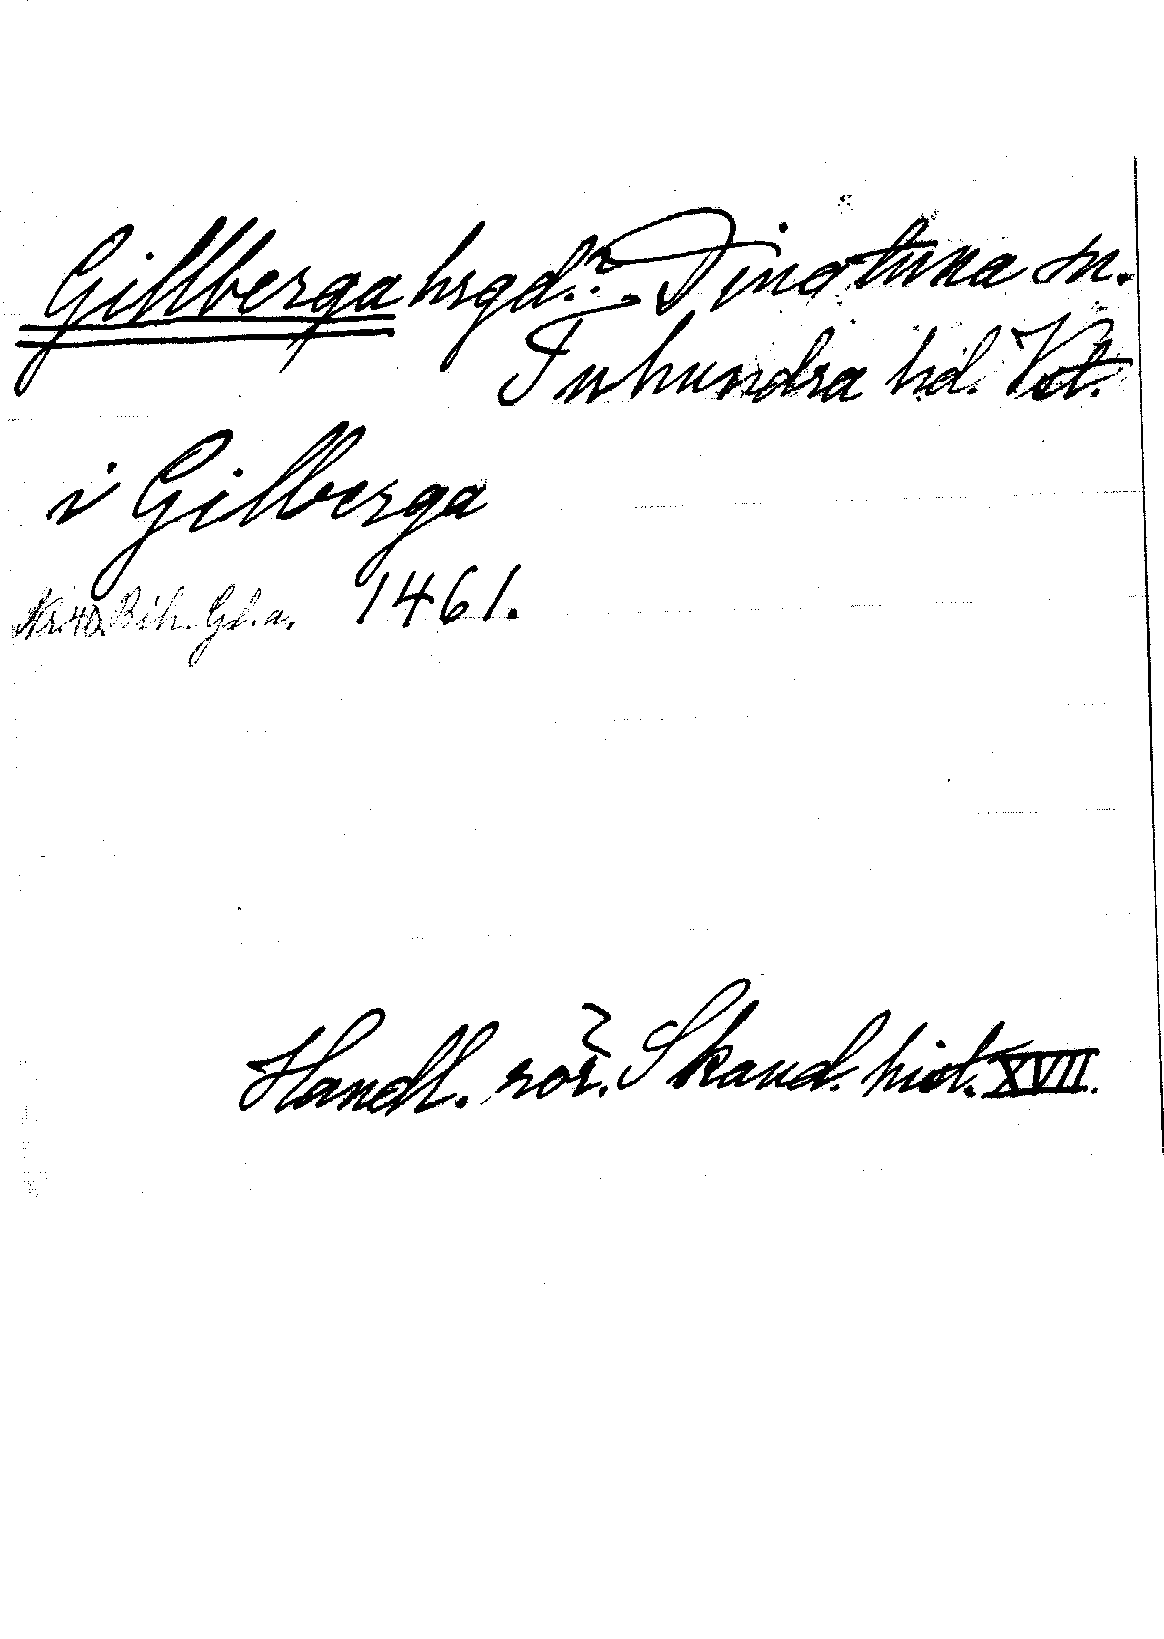 Gillberga hrgd.? Dingtuna sn.
Tuhundra hd. Vstl.
i Gilberga
Nr 40. Bih. Gd. a. 1461.
Handl. rör. Skand. hist. XVII.